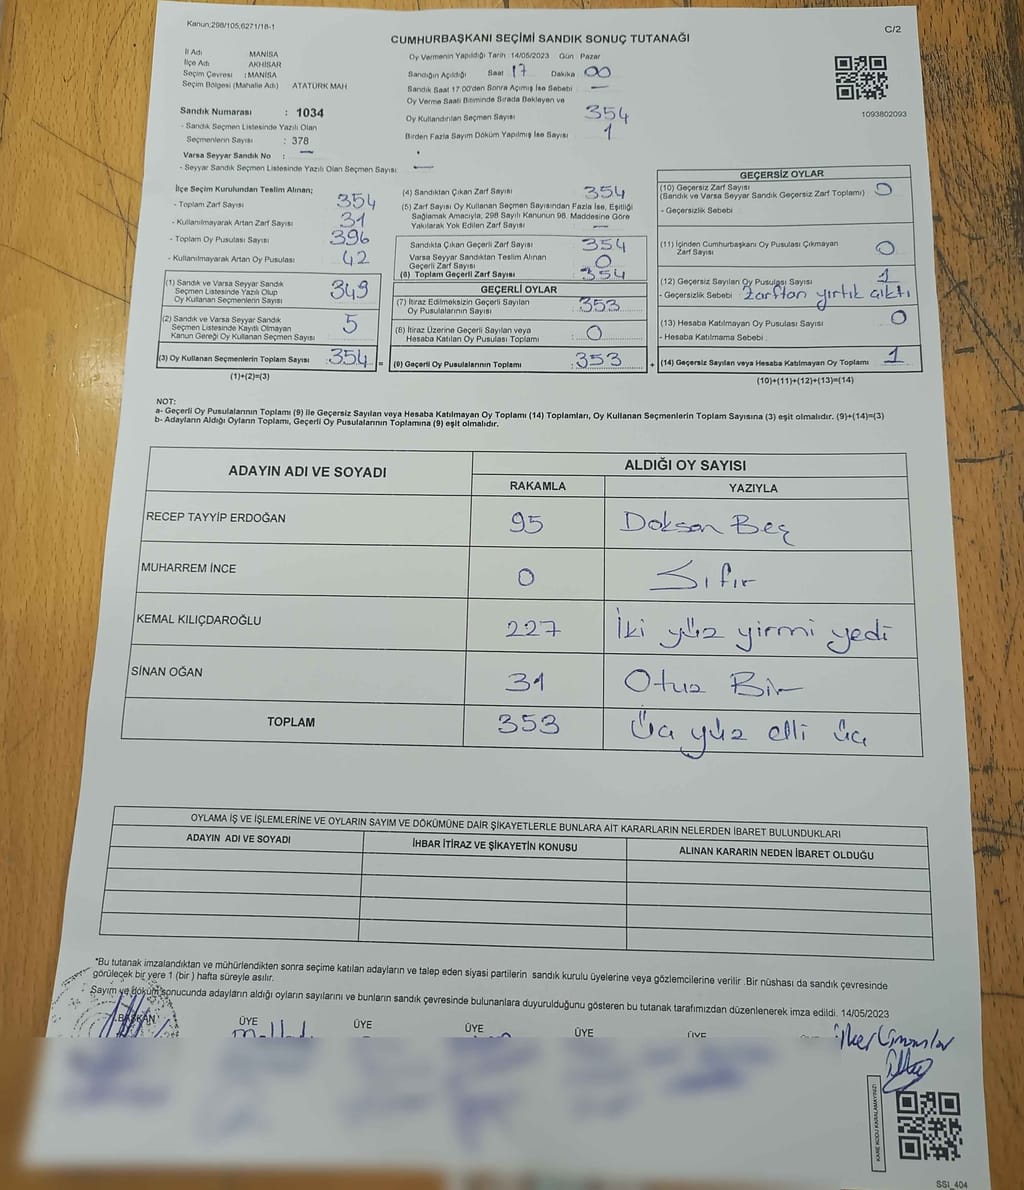 Kanun;298/105,6271/18-1
C/2
CUMHURBAŞKANI SEÇİMİ SANDIK SONUÇ TUTANAĞI
İl Adı MANİSA
İlçe Adı AKHİSAR
Seçim Çevresi : MANİSA
Seçim Bölgesi (Mahalle Adı) ATATÜRK MAH
Sandık Numarası : 1034
- Sandık Seçmen Listesinde Yazılı Olan
Seçmenlerin Sayısı : 378
Varsa Seyyar Sandık No : —
- Seyyar Sandık Seçmen Listesinde Yazılı Olan Seçmen Sayısı : —
Oy Vermenin Yapıldığı Tarih 14/05/2023 Gün Pazar
Sandığın Açıldığı Saat 17 Dakika 00
Sandık Saat 17:00'den Sonra Açılmış İse Sebebi —
Oy Verme Saati Bitiminde Sırada Bekleyen ve
Oy Kullandırılan Seçmen Sayısı 354
Birden Fazla Sayım Döküm Yapılmış İse Sayısı 1
1093802093
İlçe Seçim Kurulundan Teslim Alınan;
- Toplam Zarf Sayısı 354
- Kullanılmayarak Artan Zarf Sayısı 31
- Toplam Oy Pusulası Sayısı 396
- Kullanılmayarak Artan Oy Pusulası 42
(1) Sandık ve Varsa Seyyar Sandık
Seçmen Listesinde Yazılı Olup
Oy Kullanan Seçmenlerin Sayısı 349
(2) Sandık ve Varsa Seyyar Sandık
Seçmen Listesinde Kayıtlı Olmayan
Kanun Gereği Oy Kullanan Seçmen Sayısı 5
(3) Oy Kullanan Seçmenlerin Toplam Sayısı : 354 =
(1)+(2)=(3)
(4) Sandıktan Çıkan Zarf Sayısı 354
(5) Zarf Sayısı Oy Kullanan Seçmen Sayısından Fazla İse, Eşitliği
Sağlamak Amacıyla, 298 Sayılı Kanunun 98. Maddesine Göre
Yakılarak Yok Edilen Zarf Sayısı —
Sandıkta Çıkan Geçerli Zarf Sayısı 354
Varsa Seyyar Sandıktan Teslim Alınan
Geçerli Zarf Sayısı 0
(6) Toplam Geçerli Zarf Sayısı : 354
GEÇERLİ OYLAR
(7) İtiraz Edilmeksizin Geçerli Sayılan
Oy Pusulalarının Sayısı : 353
(8) İtiraz Üzerine Geçerli Sayılan veya
Hesaba Katılan Oy Pusulası Toplamı : 0
(9) Geçerli Oy Pusulalarının Toplamı : 353 +
GEÇERSİZ OYLAR
(10) Geçersiz Zarf Sayısı 0
(Sandık ve Varsa Seyyar Sandık Geçersiz Zarf Toplamı)
- Geçersizlik Sebebi
(11) İçinden Cumhurbaşkanı Oy Pusulası Çıkmayan
Zarf Sayısı 0
(12) Geçersiz Sayılan Oy Pusulası Sayısı 1
- Geçersizlik Sebebi Zarftan yırtık çıktı
(13) Hesaba Katılmayan Oy Pusulası Sayısı 0
- Hesaba Katılmama Sebebi
(14) Geçersiz Sayılan veya Hesaba Katılmayan Oy Toplamı 1
(10)+(11)+(12)+(13)=(14)
NOT:
a- Geçerli Oy Pusulalarının Toplamı (9) ile Geçersiz Sayılan veya Hesaba Katılmayan Oy Toplamı (14) Toplamları, Oy Kullanan Seçmenlerin Toplam Sayısına (3) eşit olmalıdır. (9)+(14)=(3)
b- Adayların Aldığı Oyların Toplamı, Geçerli Oy Pusulalarının Toplamına (9) eşit olmalıdır.
ADAYIN ADI VE SOYADI ALDIĞI OY SAYISI
RAKAMLA YAZIYLA
RECEP TAYYİP ERDOĞAN 95 Doksan Beş
MUHARREM İNCE 0 Sıfır
KEMAL KILIÇDAROĞLU 227 İki yüz yirmi yedi
SİNAN OĞAN 31 Otuz Bir
TOPLAM 353 Üç yüz elli üç
OYLAMA İŞ VE İŞLEMLERİNE VE OYLARIN SAYIM VE DÖKÜMÜNE DAİR ŞİKAYETLERLE BUNLARA AİT KARARLARIN NELERDEN İBARET BULUNDUKLARI
ADAYIN ADI VE SOYADI İHBAR İTİRAZ VE ŞİKAYETİN KONUSU ALINAN KARARIN NEDEN İBARET OLDUĞU
*Bu tutanak imzalandıktan ve mühürlendikten sonra seçime katılan adayların ve talep eden siyasi partilerin sandık kurulu üyelerine veya gözlemcilerine verilir .Bir nüshası da sandık çevresinde
görülecek bir yere 1 (bir ) hafta süreyle asılır.
Sayım ve döküm sonucunda adayların aldığı oyların sayılarını ve bunların sandık çevresinde bulunanlara duyurulduğunu gösteren bu tutanak tarafımızdan düzenlenerek imza edildi. 14/05/2023
BAŞKAN ÜYE ÜYE ÜYE ÜYE ÜYE
KARE KODU KARALAMAYINIZ!
SSI_404